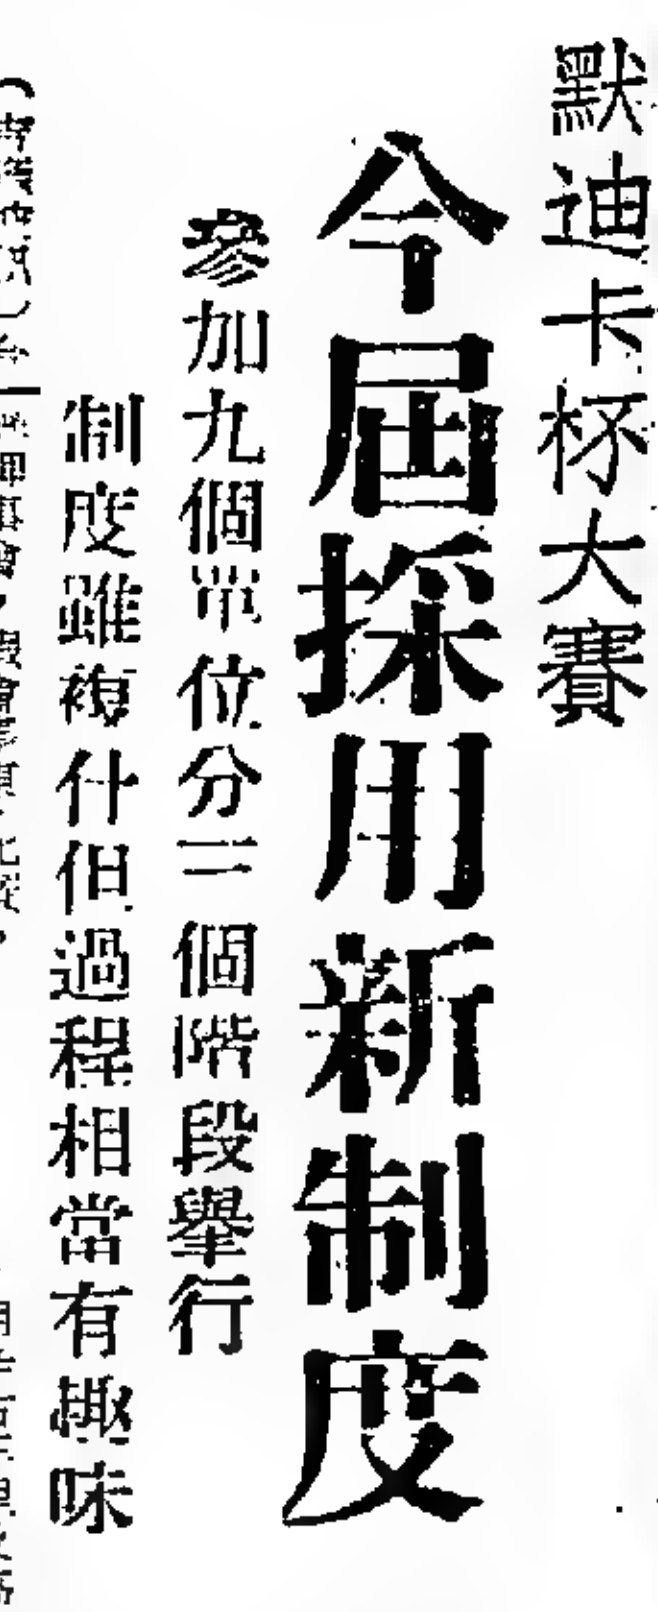 默迪卡杯大賽
今屆採用新制度
參加九個單位分三個階段舉行
制度雖複什但過程相當有趣味